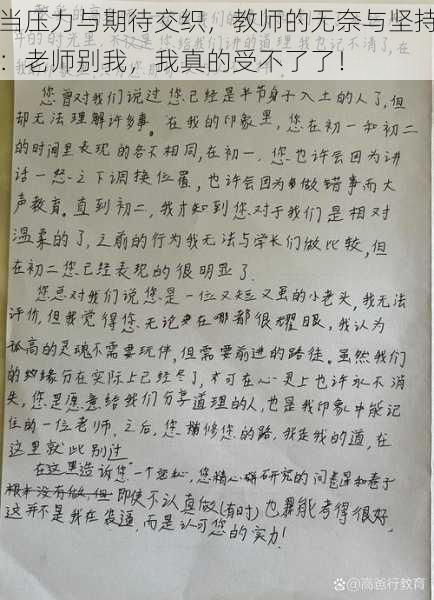 当压力与期待交织，教师的无奈与坚持
：老师别我，我真的受不了了！
您曾对我们说过您已经是半节身子入土的人了,但
却无法理解许多事。在我的印象里,您在初一和初二
的时间里表现的各不相同,在初一,您也许会因为讲
话一怒之下调换位置,也许会因为做错事而大
声教育。直到初二,我才知到您对于我们是相对
温柔的了,之前的行为我无法与学长们做比较,但
在初二您已经表现的很明显了.
您总对我们说您是一位又短又虽的小老头,我无法
评价,但我觉得您无论在哪都很耀眼,我认为
孤高的灵魂不需要玩伴,但需要前进的路徒。虽然我们
的缘分在实际上已经尽了,可在心灵上也许永不消
失,您是愿意给我们分享道理的人,也是我印象中能记
住的一位老师。之后,您修您的路,我走我的道,在
这里就此别过
在这里告诉您一个,您精心研究的问卷和卷子
根本没有做,但即使不认真做(有时)也能考得很好,
这并不是我在,而是认可您的实力!
知乎 @嵩爸行教育